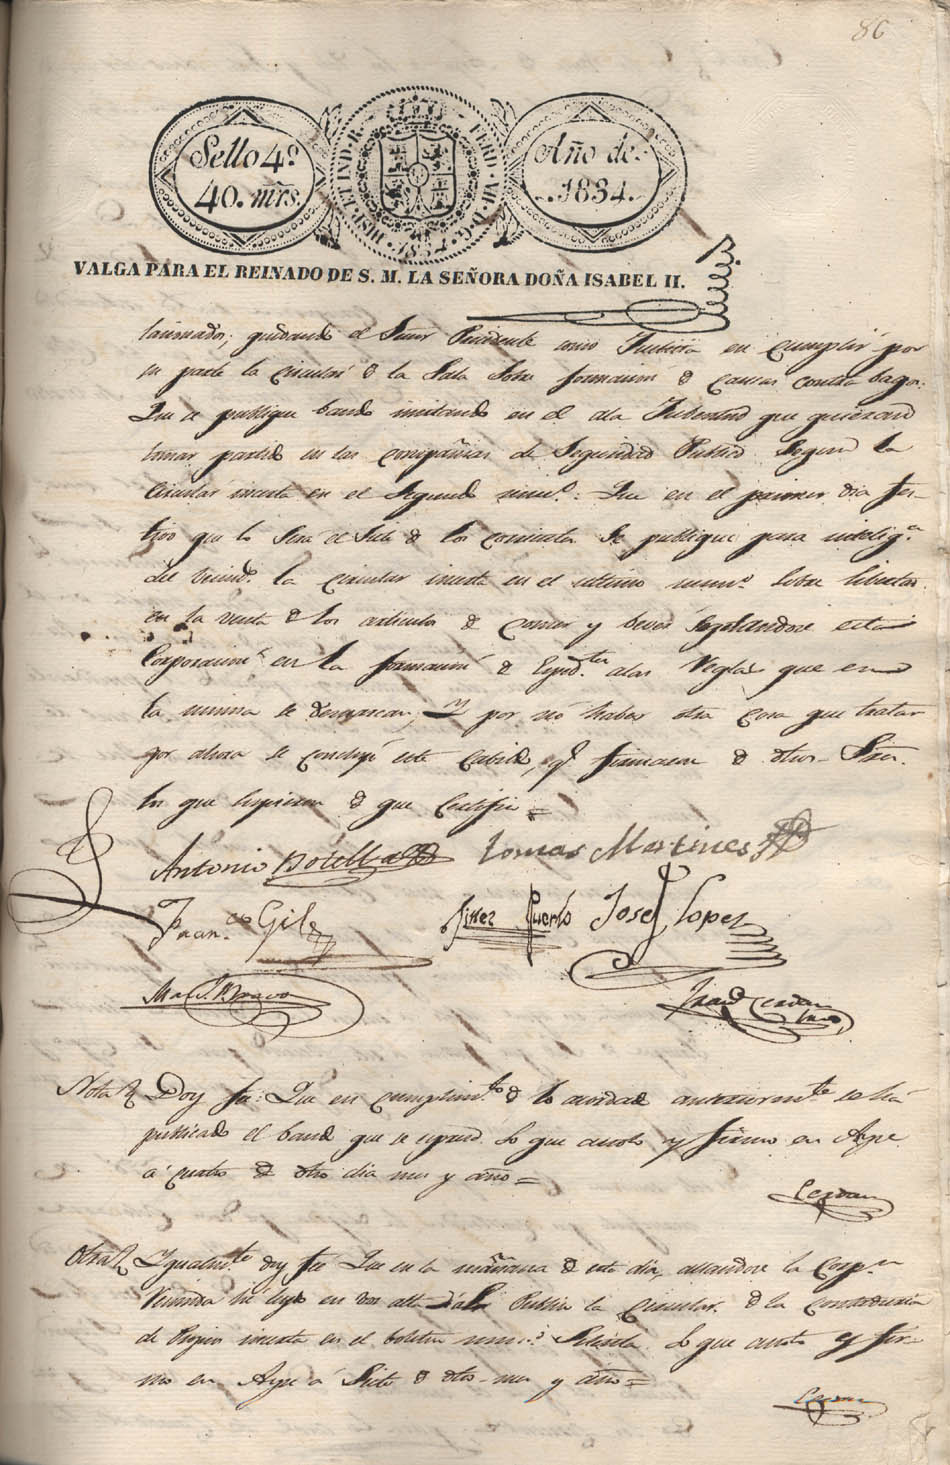 86
Sello 4º
40. mrs.
HISP. ET IND. R. FERD. VII. D. G.
Año de
1834.
VALGA PARA EL REINADO DE S. M. LA SEÑORA DOÑA ISABEL II.
quedando el Señor Presidente como Justicia en cumplir por
su parte la circular de la Sala sobre formacion de causas contra bagos:
Que se publique bando invitando en el a la Jubentud que quieran
tomar partido en las compañias de Seguridad Publica segun la
Circular inserta en el Segundo num.º: Que en el primer dia fes-
tivo que lo sera el Siete de los corrientes se publique para intelig.ª
del vecind.º la circular inserta en el ultimo num.º sobre libertad
en la venta de los articulos de comer y bever
Corporacion en la formacion de Exped.tes a las Reglas que en
la misma se demarcan; Y por no haber otra cosa que tratar
por ahora se concluyó este Cabildo, q.e firmaron de dhos. Sres.
los que supieron de que Certifico =
Antonio Botella
Tomas Martines
Fran.co Gil
Gines Puerto
Josef Lopez
Man.l Bravo
Fran.co Cerdan
Nota Doy fe: Que en cumplim.to de lo acordado anteriorm.te se há
publicado el bando que se espresa. Lo que anoto y firmo en Aspe
á cuatro de dho dia mes y año =
Cerdan
Otra Ygualm.te doy fee Que en la mañana de este dia, la Corp.n
Reunida he leydo en vos alta Publica la Circular de la contaduria
de Propios inserta en el boletin num.º Setenta. Lo que anoto y fir-
mo en Aspe á Siete de dho. mes y año =
Cerdan